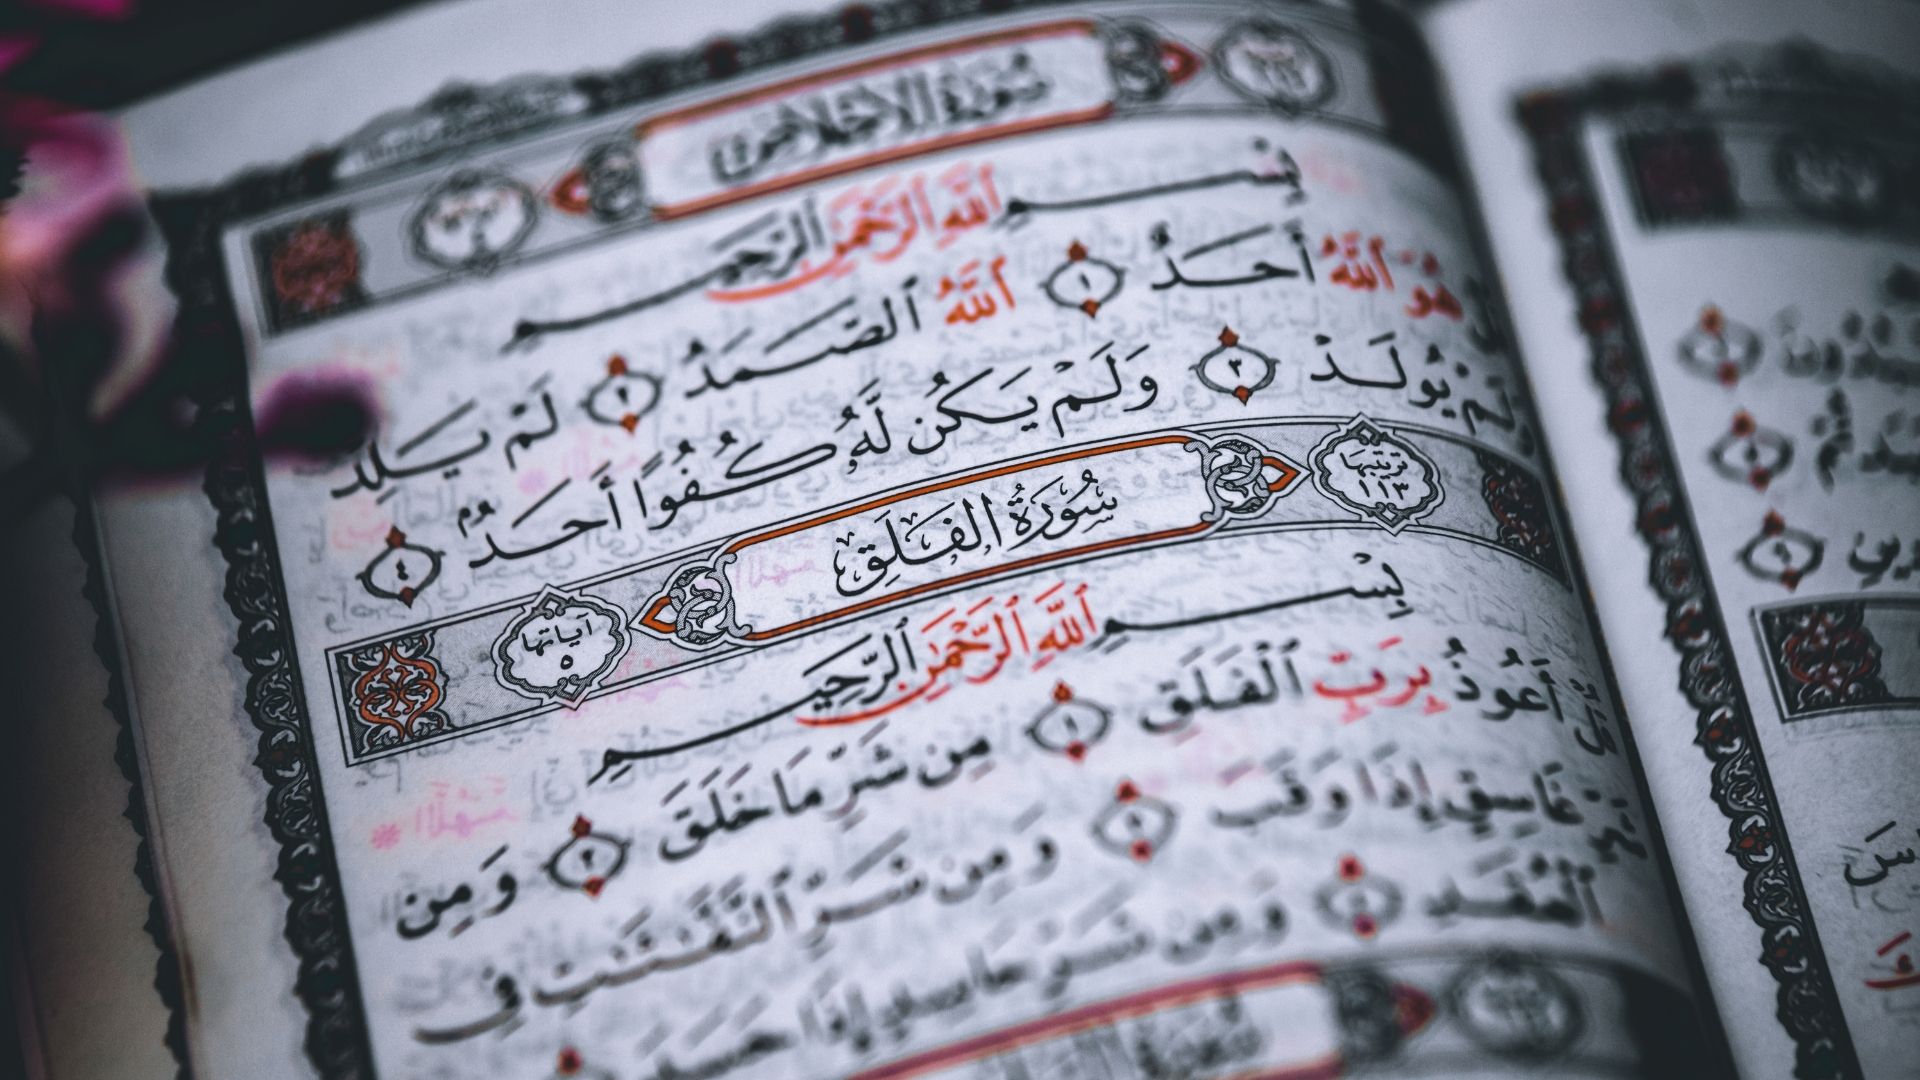 سُورَةُ الإِخْلَاصِ
بِسْمِ ٱللَّهِ ٱلرَّحْمَٰنِ ٱلرَّحِيمِ
هُوَ ٱللَّهُ أَحَدٌ ١ ٱللَّهُ ٱلصَّمَدُ ٢ لَمْ يَلِدْ
وَلَمْ يُولَدْ ٣ وَلَمْ يَكُن لَّهُۥ كُفُوًا أَحَدٌۢ ٤
تَرتيبُها ١١٣ سُورَةُ الفَلَقِ آياتها ٥
بِسْمِ ٱللَّهِ ٱلرَّحْمَٰنِ ٱلرَّحِيمِ
قُلْ أَعُوذُ بِرَبِّ ٱلْفَلَقِ ١ مِن شَرِّ مَا خَلَقَ ٢ وَمِن
شَرِّ غَاسِقٍ إِذَا وَقَبَ ٣ وَمِن شَرِّ ٱلنَّفَّٰثَٰتِ فِي
ٱلْعُقَدِ ٤ وَمِن شَرِّ حَاسِدٍ إِذَا حَسَدَ